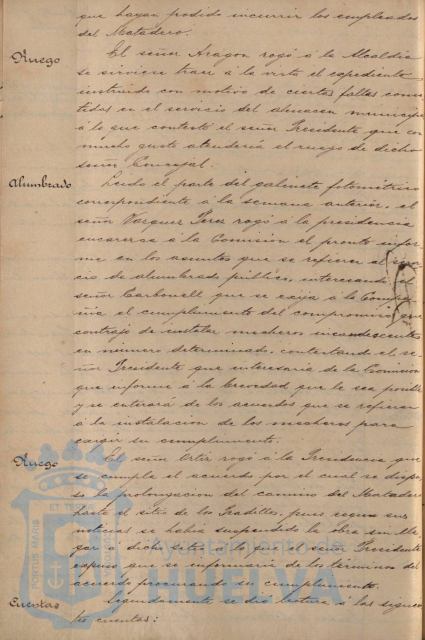 que hayan podido incurrir los empleados
del Matadero.
Ruego
El señor Aragon rogó á la Alcaldia
se sirviese traer á la vista el expediente
instruido con motivo de ciertas faltas come-
tidas en el servicio del almacen municipal
á lo que contestó el señor Presidente que con
mucho gusto atenderia el ruego de dicho
señor Concejal.
Alumbrado
Leido el parte del gabinete fotométrico
correspondiente á la semana anterior, el
señor Vazquez rogó á la presidencia
encarezca á la Comisión el pronto infor-
me en los asuntos que se refieren al servi-
cio de alumbrado público, interesando el
señor Carbonell que se exija á la Compa-
ñia el cumplimiento del compromiso que
contrajo de instalar mecheros incandescentes
en número determinado, contestando el se-
ñor Presidente que interesaria de la Comision
que informe á la brevedad que le sea posible
y se enterará de los acuerdos que se refieren
á la instalacion de los mecheros para
exigir su cumplimiento.
Ruego
El señor Ortiz rogó á la Presidencia que
se cumpla el acuerdo por el cual se dispu-
so la prolongacion del camino del Matadero
hasta el sitio de los Tradillos, pues segun sus
noticias se habia suspendido la obra sin lle-
gar á dicho sitio, á lo que el señor Presidente
expuso que se informaria de los términos del
acuerdo procurando su cumplimiento.
Cuentas
Seguidamente se dió lectura á las siguien-
tes cuentas:
PORTUS MARIS
ET TERRÆ
Ayuntamiento de
HUELVA